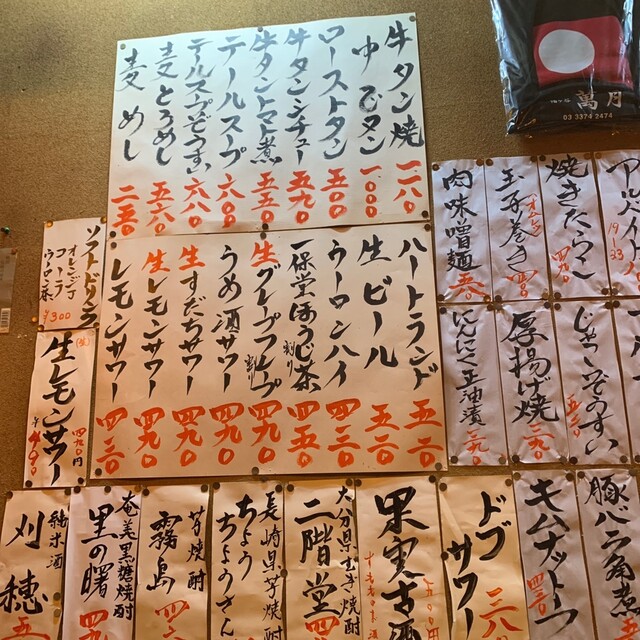 牛タン焼 一一八〇
中むタン 一、〇〇〇
ローストタン 五〇〇
牛タンシチュー 五九〇
牛タントマト煮 五五〇
テールスープ 六〇〇
テールスープぞうすい 六八〇
麦とろめし 五六〇
麦めし 二五〇
ハートランド 五二〇
生ビール 五二〇
ウーロンハイ 四二〇
一保堂ほうじ茶割り 四五〇
生グレープフルーツ割り 四九〇
うめ酒サワー 四九〇
生すだちサワー 四九〇
生レモンサワー 四九〇
レモンサワー 四二〇
萬月
03 3374 2474
焼きたらこ 四九〇
玉子巻き
肉味噌麺
19-23
ソフトドリンク
オレンジ
コーラ
ウーロン茶
¥300
生レモンサワー
四九〇円
¥400
じゃこぞうすい 五五〇
厚揚げ焼 三九〇
にんにく玉油漬 三九〇
豚バラ角煮
キムナットーフ 四三〇
ドブサワー 三八〇
果実古酒
大分県むぎ焼酎
二階堂 四
長崎県芋焼酎
ちょうちょうさん
芋焼酎
霧島 四
奄美黒糖焼酎
里の曙 四九〇
純米酒
刈穂 五